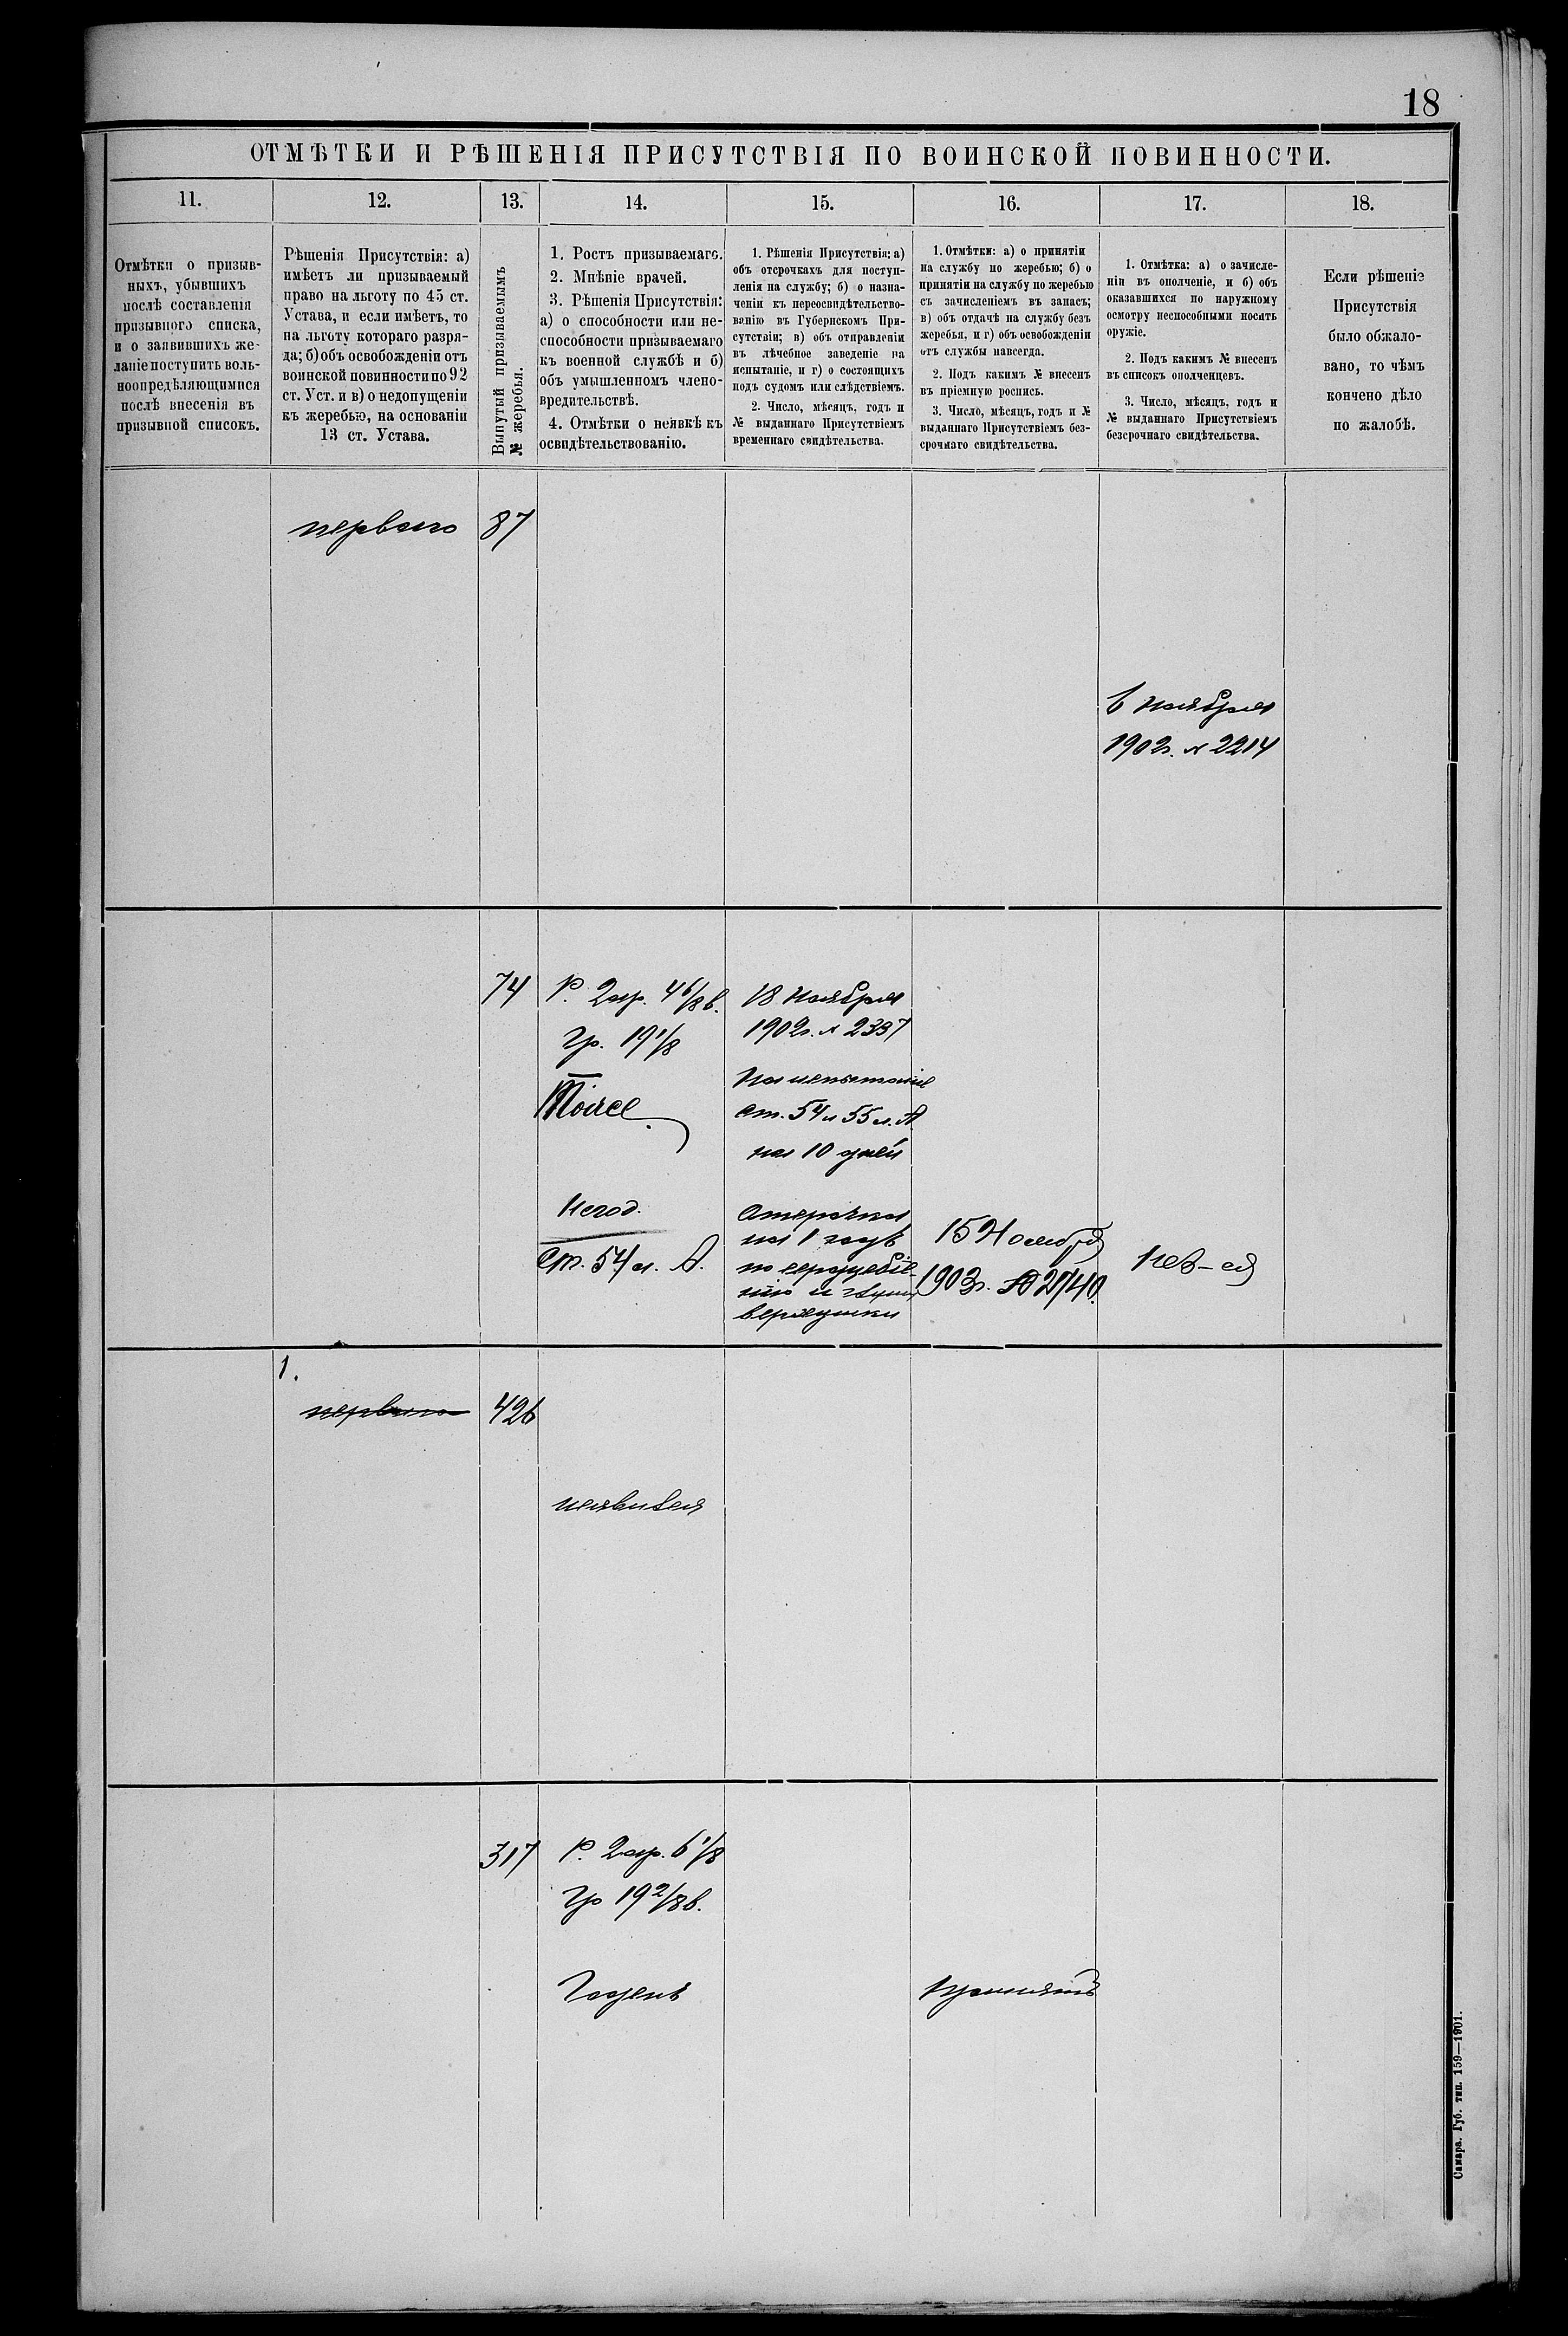 18
ОТМѢТКИ И РѢШЕНІЯ ПРИСУТСТВІЯ ПО ВОИНСКОЙ ПОВИННОСТИ.
11.
12.
13.
14.
15.
16.
17.
18.
Отмѣтки о призыв-
ныхъ, убывшихъ
послѣ составленія
призывного списка,
и о заявившихъ же-
ланіе поступить воль-
ноопредѣляющимися
послѣ внесенія въ
призывной списокъ.
Рѣшенія Присутствія: а)
имѣетъ ли призываемый
право на льготу по 45 ст.
Устава, и если имѣетъ, то
на льготу котораго разря-
да; б) объ освобожденіи отъ
воинской повинности по 92
ст. Уст. и в) о недопущеніи
къ жеребью, на основаніи
13 ст. Устава.
Вынутый призываемымъ
№ жеребья.
1. Ростъ призываемаго.
2. Мнѣніе врачей.
3. Рѣшенія Присутствія:
а) о способности или не-
способности призываемаго
къ военной службѣ и б)
объ умышленномъ члено-
вредительствѣ.
4. Отмѣтки о неявкѣ къ
освидѣтельствованію.
1. Рѣшенія Присутствія: а)
объ отсрочкахъ для поступ-
ленія на службу; б) о назна-
ченіи къ переосвидѣтельство-
ванію въ Губернскомъ При-
сутствіи; в) объ отправленіи
въ лѣчебное заведеніе на
испытаніе, и г) о состоящихъ
подъ судомъ или слѣдствіемъ.
2. Число, мѣсяцъ, годъ и
№ выданнаго Присутствіемъ
временнаго свидѣтельства.
1. Отмѣтки: а) о принятіи
на службу по жеребью; б) о
принятіи на службу по жеребью
съ зачисленіемъ въ запасъ;
в) объ отдачѣ на службу безъ
жеребья, и г) объ освобожденіи
отъ службы навсегда.
2. Подъ какимъ № внесенъ
въ пріемную роспись.
3. Число, мѣсяцъ, годъ и №
выданнаго Присутствіемъ без-
срочнаго свидѣтельства.
1. Отмѣтка: а) о зачисле-
ніи въ ополченіе, и б) объ
оказавшихся по наружному
осмотру неспособными носить
оружіе.
2. Подъ какимъ № внесенъ
въ списокъ ополченцевъ.
3. Число, мѣсяцъ, годъ и
№ выданнаго Присутствіемъ
безсрочнаго свидѣтельства.
Если рѣшеніе
Присутствія
было обжало-
вано, то чѣмъ
кончено дѣло
по жалобѣ.
перваго
87
6 ноября
1902г. № 2214
74
Р. 2 ар. 4 6/8 в.
Гр. 19 1/8
Негод.
ст. 54 л. А.
18 ноября
1902г. № 2337
На испытаніе
ст. 54 и 55 л. А
на 10 дней
отсрочка
на 1 годъ
по сердцебіе-
нію и
верхушки
15 Ноября
1903г. № 2740.
1.
перваго
426
неявился
317
Р. 2 ар. 6 1/8
Гр 19 2/8 в.
Годенъ
принятъ
Самара. Губ. тип. 159—1901.